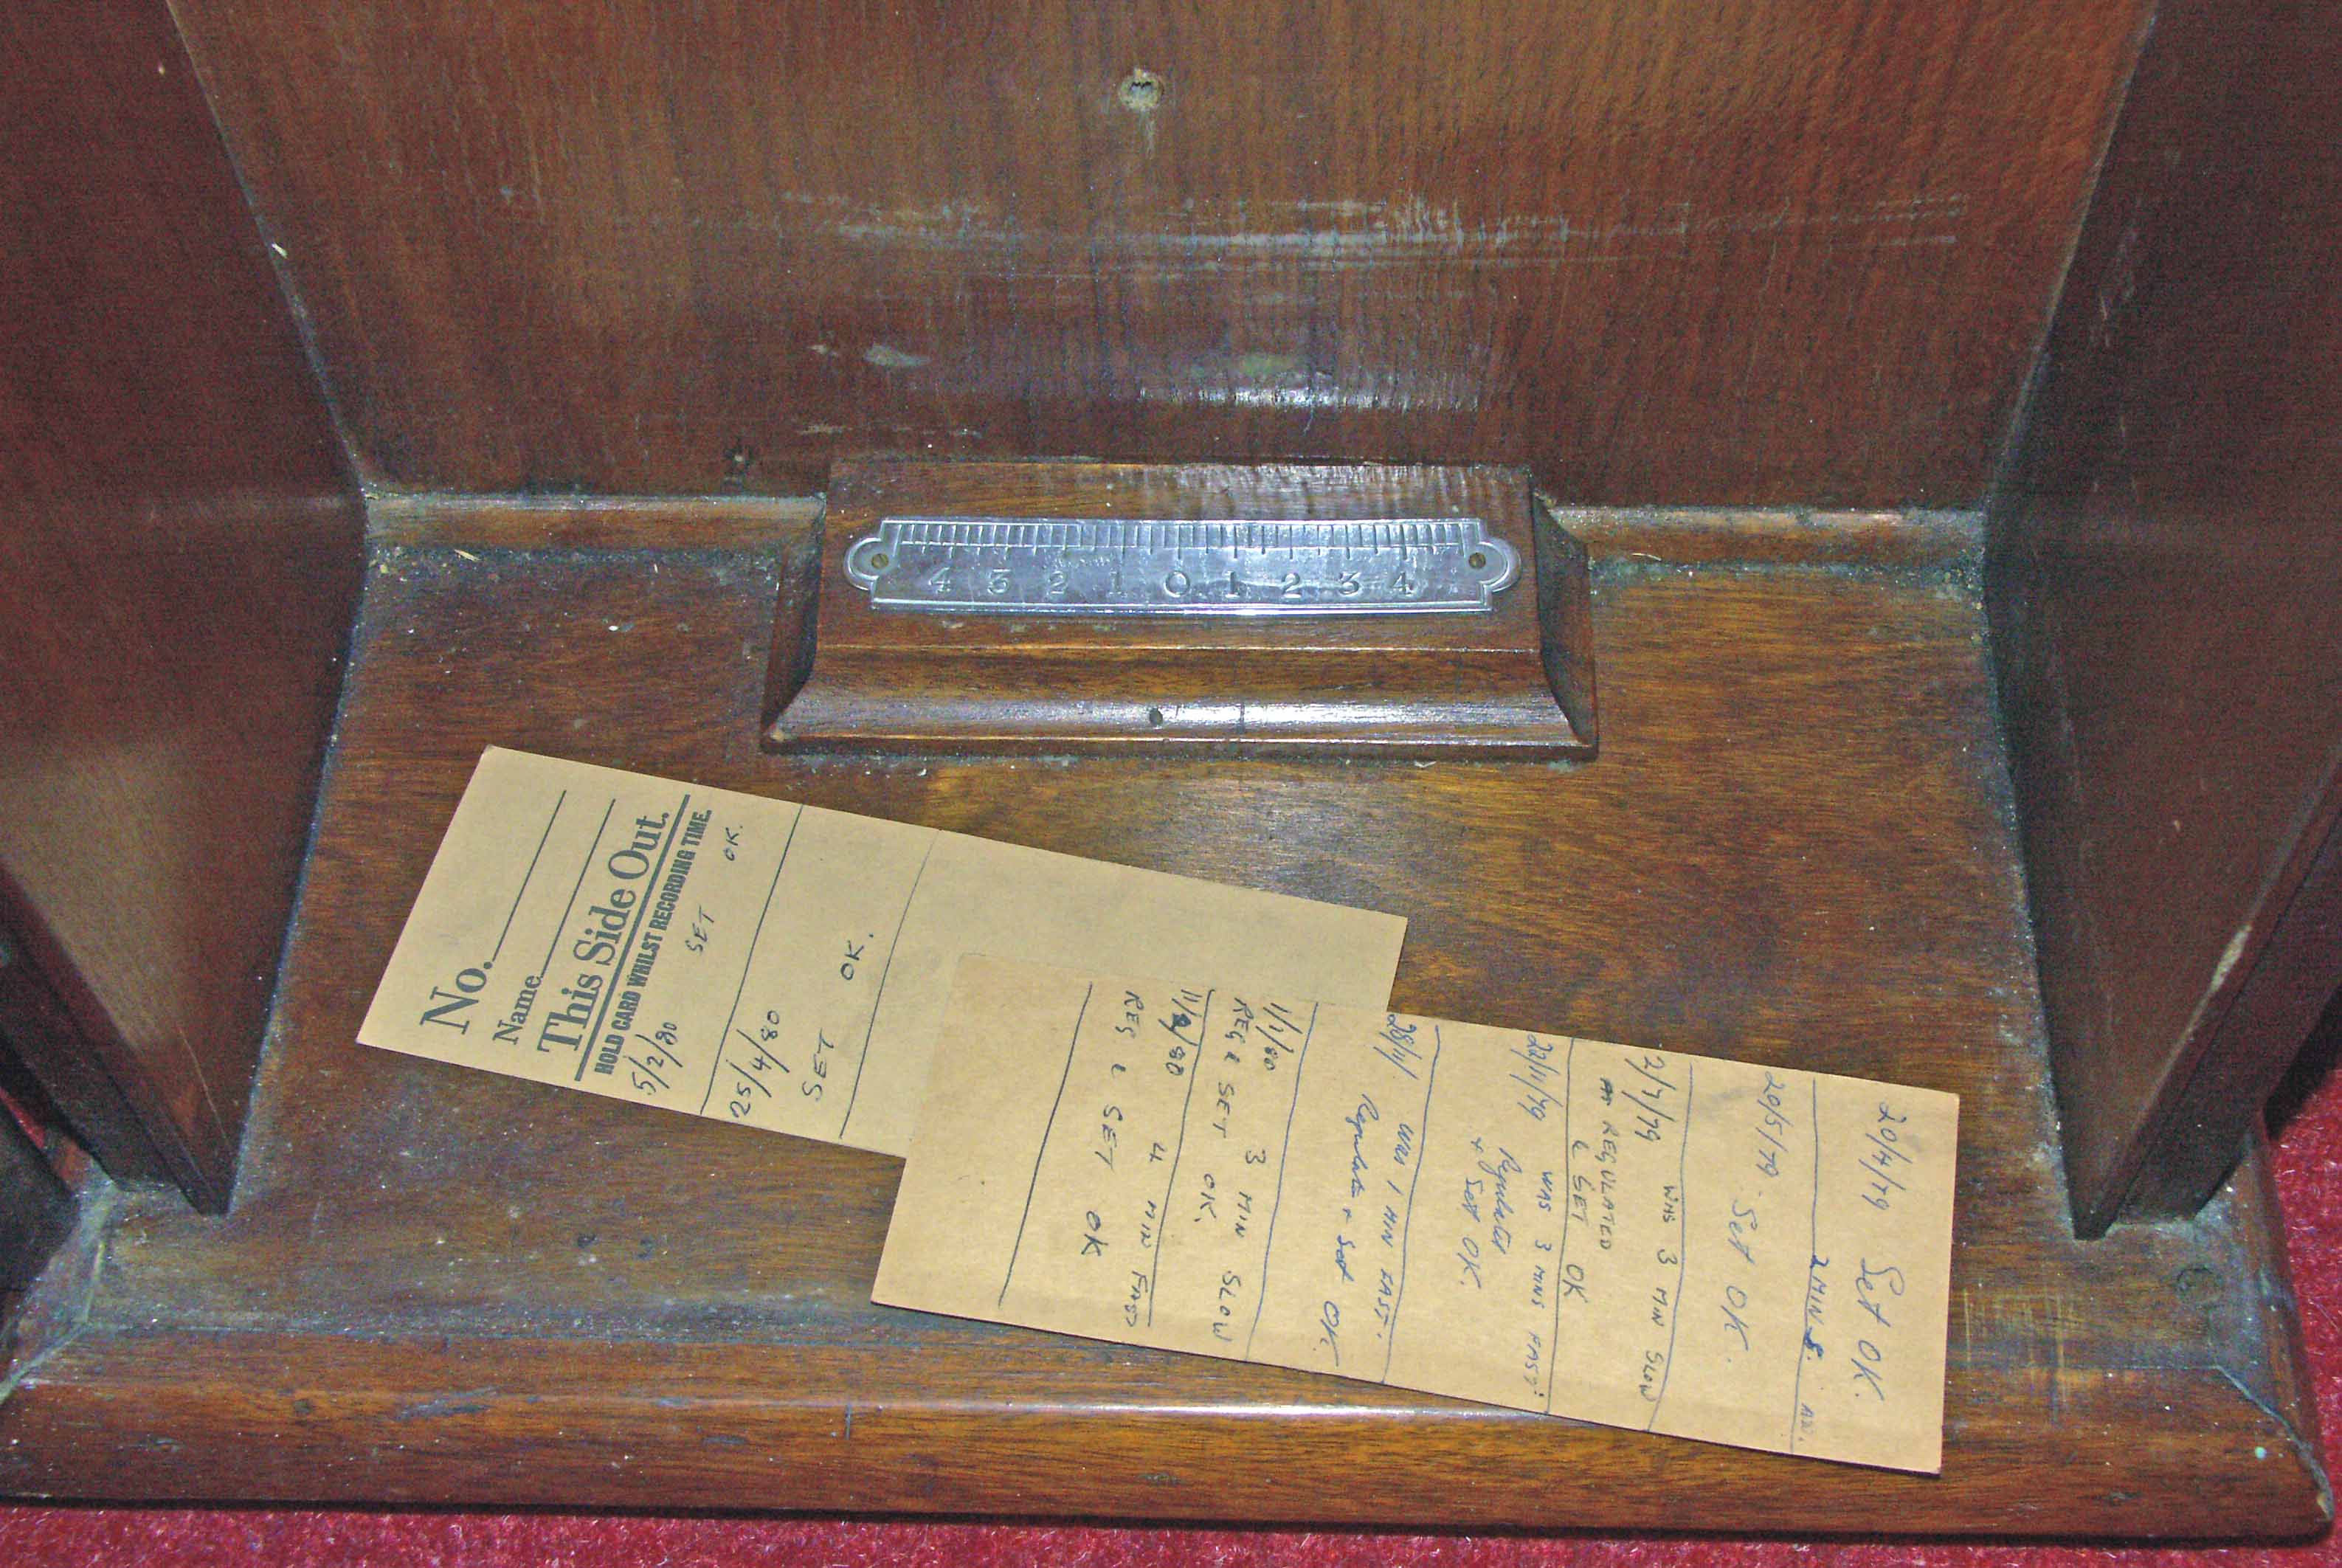 4 3 2 1 0 1 2 3 4
No.
Name
This Side Out.
HOLD CARD WHILST RECORDING TIME.
5/2/80 SET OK.
25/4/80
SET OK.
20/4/79 Set OK.
2 MIN S.
20/5/79. Set OK.
2/7/79 WAS 3 MIN SLOW
REGULATED
& SET OK
22/11/79 WAS 3 MINS FAST
Regulated
+ Set OK.
28/11/ WAS 1 MIN FAST.
Regulate + Set OK.
1/1/80 3 MIN SLOW
REG & SET OK.
11/2/80 4 MIN FAST
REG & SET OK